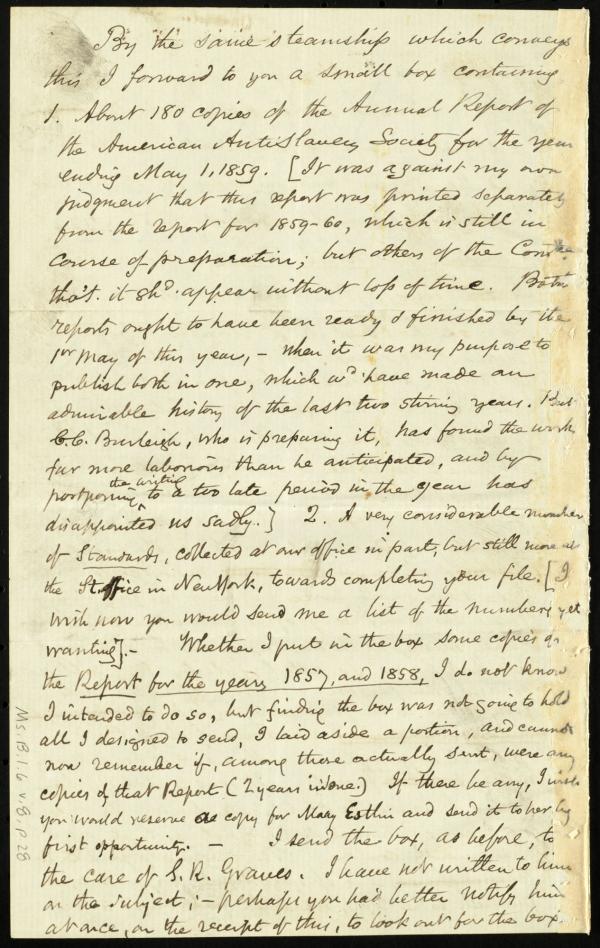 By the same steamship which conveys
this I forward to you a small box containing
1. About 180 copies of the Annual Report of
the American AntiSlavery Society for the year
ending May 1, 1859. [It was against my own
judgment that this report was printed separately
from the report for 1859-60, which is still in
course of preparation; but others of the Com.ee
tho't. it sh.d appear without loss of time. Both
reports ought to have been ready & finished by the
1st May of this year, - when it was my purpose to
publish both in one, which w.d have made an
admirable history of the last two stirring years. But
C.C. Burleigh, who is preparing it, has found the work
far more laborious than he anticipated, and by
postponing the writing to a too late period in the year has
disappointed us sadly.] 2. A very considerable number
of Standards, collected at our office in part, but still more at
the St. office in New York, towards completing your file. [I
wish now you would send me a list of the numbers yet
wanting]. - Whether I put in the box some copies of
the Report for the years 1857, and 1858, I do not know
I intended to do so, but finding the box was not going to hold
all I designed to send, I laid aside a portion, and cannot
now remember if, among those actually sent, were any
copies of that Report (2 years in one.) If there be any, I wish
you would reserve a copy for Mary Estlin and send it to her by
first opportunity. - I send the box, as before, to
the care of S. R. Graves. I have not written to him
on the subject; - perhaps you had better notify him
at once, on the receipt of this, to look out for the box.
Ms. B. 1. 6 v. 8, p. 28